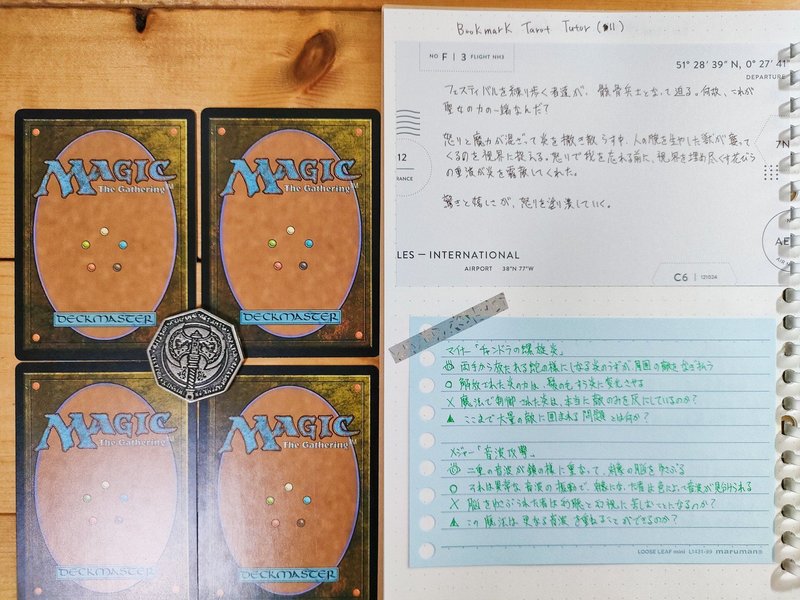 MAGIC
The Gathering
DECKMASTER
MAGIC
The Gathering
DECKMASTER
MAGIC
The Gathering
DECKMASTER
MAGIC
The Gathering
DECKMASTER
Bookmark Tarot Tutor
NO F | 3 FLIGHT NH3
51° 28' 39" N, 0° 27' 41"
DEPARTURE
フェスティバルを練り歩く者達が、骸骨兵士となって迫る。何故、これが
聖なの力の一端なんだ?
怒りと魔力が混ざって炎を撒き散らす中、人の腕を生やした獣が襲って
くるのを視界に捉える。怒りで我を忘れる前に、視界を埋め尽くす花びら
の奔流が炎を霧散してくれた。
驚きと嬉しさが、怒りを塗り潰していく。
12
RANCE
7N
AE
LES – INTERNATIONAL
AIRPORT 38°N 77°W
C6 | 121024
マイナー「チャンドラの螺旋炎」
両手から放たれる蛇の様にしなる炎のうずが周囲の敵をなぎ払う
○ 解放された炎の力は、
X 魔法で制御された炎は、本当に敵のみを灰にしているのか?
▲ ここまで大量の敵に囲まれる問題とは何か?
メジャー「音波攻撃」
二重の音波が鎖の様に重なって、対象の脳をゆさぶる
○ それは異常な音波の振動で、
X 脳をゆさぶられた者は幻聴と幻視に苦しむことになるのか?
▲ この魔法は更なる音波を重ねることができるのか?
LOOSE LEAF mini L1431-99 maruman